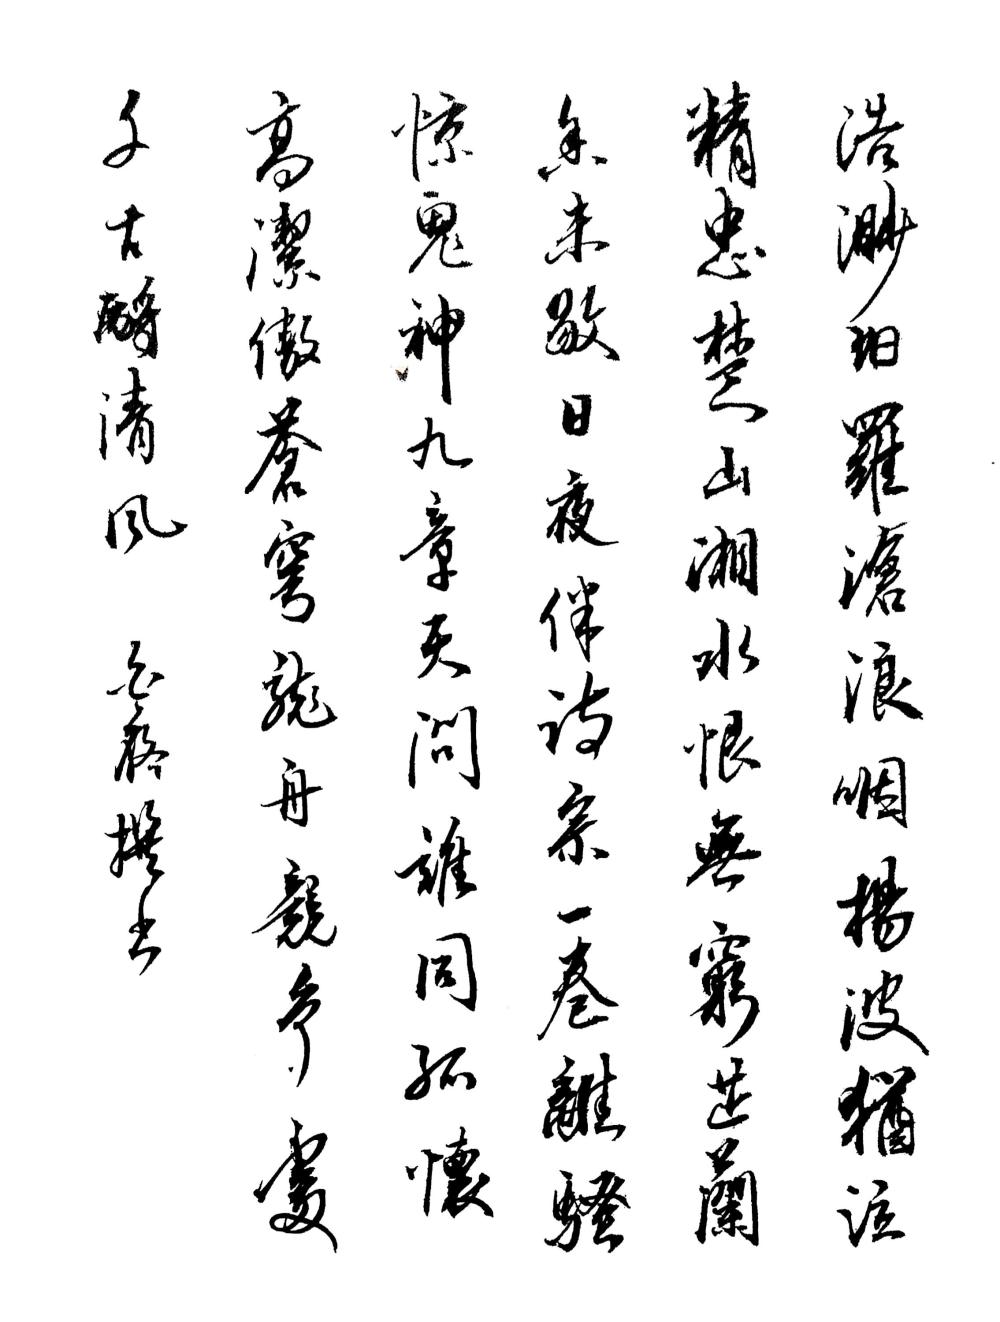 浩渺汨羅滄浪咽揚波猶泣
精忠楚山湘水恨無窮芷蘭
香未歇日夜伴詩宗一卷離騷
惊鬼神九章天問誰同孤懷
高潔傲蒼穹龍舟競争處
千古酹清風 撰书